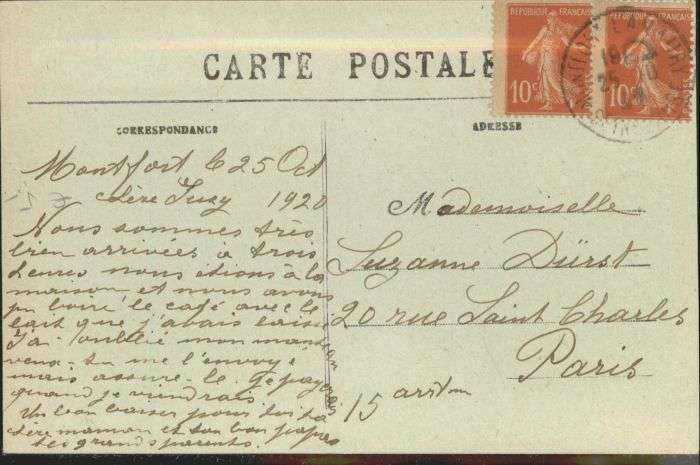 REPUBLIQUE FRANÇAISE
10c
REPUBLIQUE FRANÇAISE
10c
25
CARTE POSTALE
CORRESPONDANCE
Montfort le 25 Oct
1920
chère Suzy
Nous sommes très
bien arrivées à trois
heures nous étions à la
maison et nous avons
pu boire le café avec le
lait que j'avais laissé
J'ai oublié mon man
teau
tu me l'envoye
mais assure-le je payerai
quand je viendrais
Un bon baiser pour toi ta
chère maman et ton bon papa
tes grands parents
ADRESSE
Mademoiselle
Suzanne Dürst
20 rue Saint Charles
Paris
15 arrdm